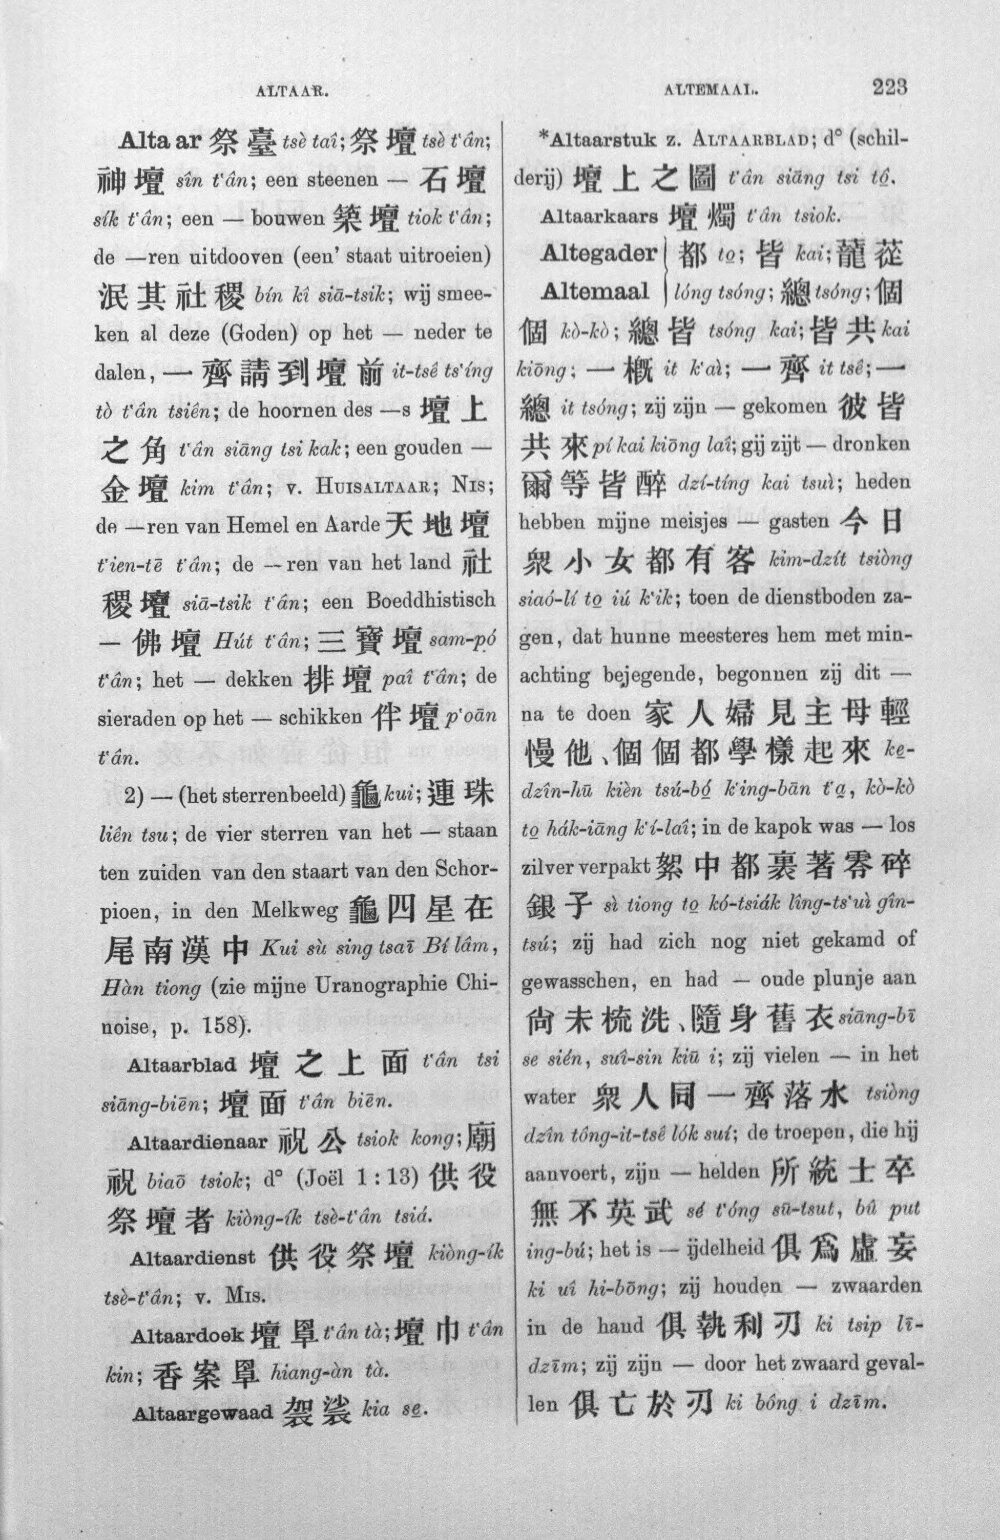 ALTAAR.
ALTEMAAL.
223
Altaar 祭臺 tsè taî; 祭壇 tsè t'ân;
神壇 sîn t'ân; een steenen — 石壇
sík t'ân; een — bouwen 築壇 tiok t'ân;
de —ren uitdooven (een' staat uitroeien)
泯其社稷 bín kî siā-tsik; wij smee-
ken al deze (Goden) op het — neder te
dalen, 一齊請到壇前 it-tsê ts'íng
tò t'ân tsiên; de hoornen des —s 壇上
之角 t'ân siāng tsi kak; een gouden —
金壇 kim t'ân; v. HUISALTAAR; NIS;
de —ren van Hemel en Aarde 天地壇
t'ien-tē t'ân; de —ren van het land 社
稷壇 siā-tsik t'ân; een Boeddhistisch
— 佛壇 Hút t'ân; 三寶壇 sam-pó
t'ân; het — dekken 排壇 paî t'ân; de
sieraden op het — schikken 伴壇 p'oān
t'ân.
2) — (het sterrenbeeld) 龜 kui; 連珠
liên tsu; de vier sterren van het — staan
ten zuiden van den staart van den Schor-
pioen, in den Melkweg 龜四星在
尾南漢中 Kui sù sing tsaī Bí lâm,
Hàn tiong (zie mijne Uranographie Chi-
noise, p. 158).
Altaarblad 壇之上面 t'ân tsi
siāng-biēn; 壇面 t'ân biēn.
Altaardienaar 祝公 tsiok kong; 廟
祝 biaō tsiok; d° (Joël 1:13) 供役
祭壇者 kiòng-ík tsè-t'ân tsiá.
Altaardienst 供役祭壇 kiòng-ík
tsè-t'ân; v. MIS.
Altaardoek 壇罩 t'ân tà; 壇巾 t'ân
kin; 香案罩 hiang-àn tà.
Altaargewaad 袈裟 kia se̱.
*Altaarstuk z. ALTAARBLAD; d° (schil-
derij) 壇上之圖 t'ân siāng tsi tô.
Altaarkaars 壇燭 t'ân tsiok.
Altegader 都 to̱; 皆 kai; 蘢蓯
Altemaal lóng tsóng; 總 tsóng; 個
個 kò-kò; 總皆 tsóng kai; 皆共 kai
kiōng; 一概 it k'aì; 一齊 it tsê; 一
總 it tsóng; zij zijn — gekomen 彼皆
共來 pí kai kiōng laî; gij zijt — dronken
爾等皆醉 dzí-tíng kai tsuì; heden
hebben mijne meisjes — gasten 今日
衆小女都有客 kim-dzít tsiòng
siaó-lí to̱ iú k'ik; toen de dienstboden za-
gen, dat hunne meesteres hem met min-
achting bejegende, begonnen zij dit —
na te doen 家人婦見主母輕
慢他、個個都學樣起來 ke̱-
dzîn-hū kièn tsú-bó̱ k'ing-bān t'a̱, kò-kò
to̱ hák-iāng k'í-laî; in de kapok was — los
zilver verpakt 絮中都裹著零碎
銀子 sì tiong to̱ kó-tsiák lîng-ts'uì gîn-
tsú; zij had zich nog niet gekamd of
gewasschen, en had — oude plunje aan
尙未梳洗、隨身舊衣 siāng-bī
se sién, suî-sin kiū i; zij vielen — in het
water 衆人同一齊落水 tsiòng
dzîn tóng-it-tsê lók suí; de troepen, die hij
aanvoert, zijn — helden 所統士卒
無不英武 sé t'óng sū-tsut, bû put
ing-bú; het is — ijdelheid 俱爲虛妄
ki uî hi-bōng; zij houden — zwaarden
in de hand 俱執利刃 ki tsip lī-
dzīm; zij zijn — door het zwaard geval-
len 俱亡於刃 ki bông i dzīm.